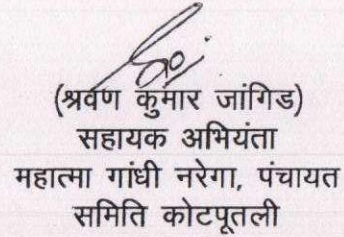 (श्रवण कुमार जांगिड)
सहायक अभियंता
महात्मा गांधी नरेगा, पंचायत
समिति कोटपूतली